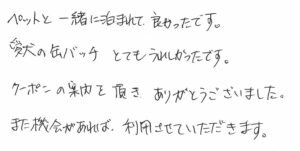 ペットと一緒に泊まれて良かったです。
愛犬の缶バッチ とてもうれしかったです。
クーポンの案内を頂き ありがとうございました。
また機会があれば、利用させていただきます。